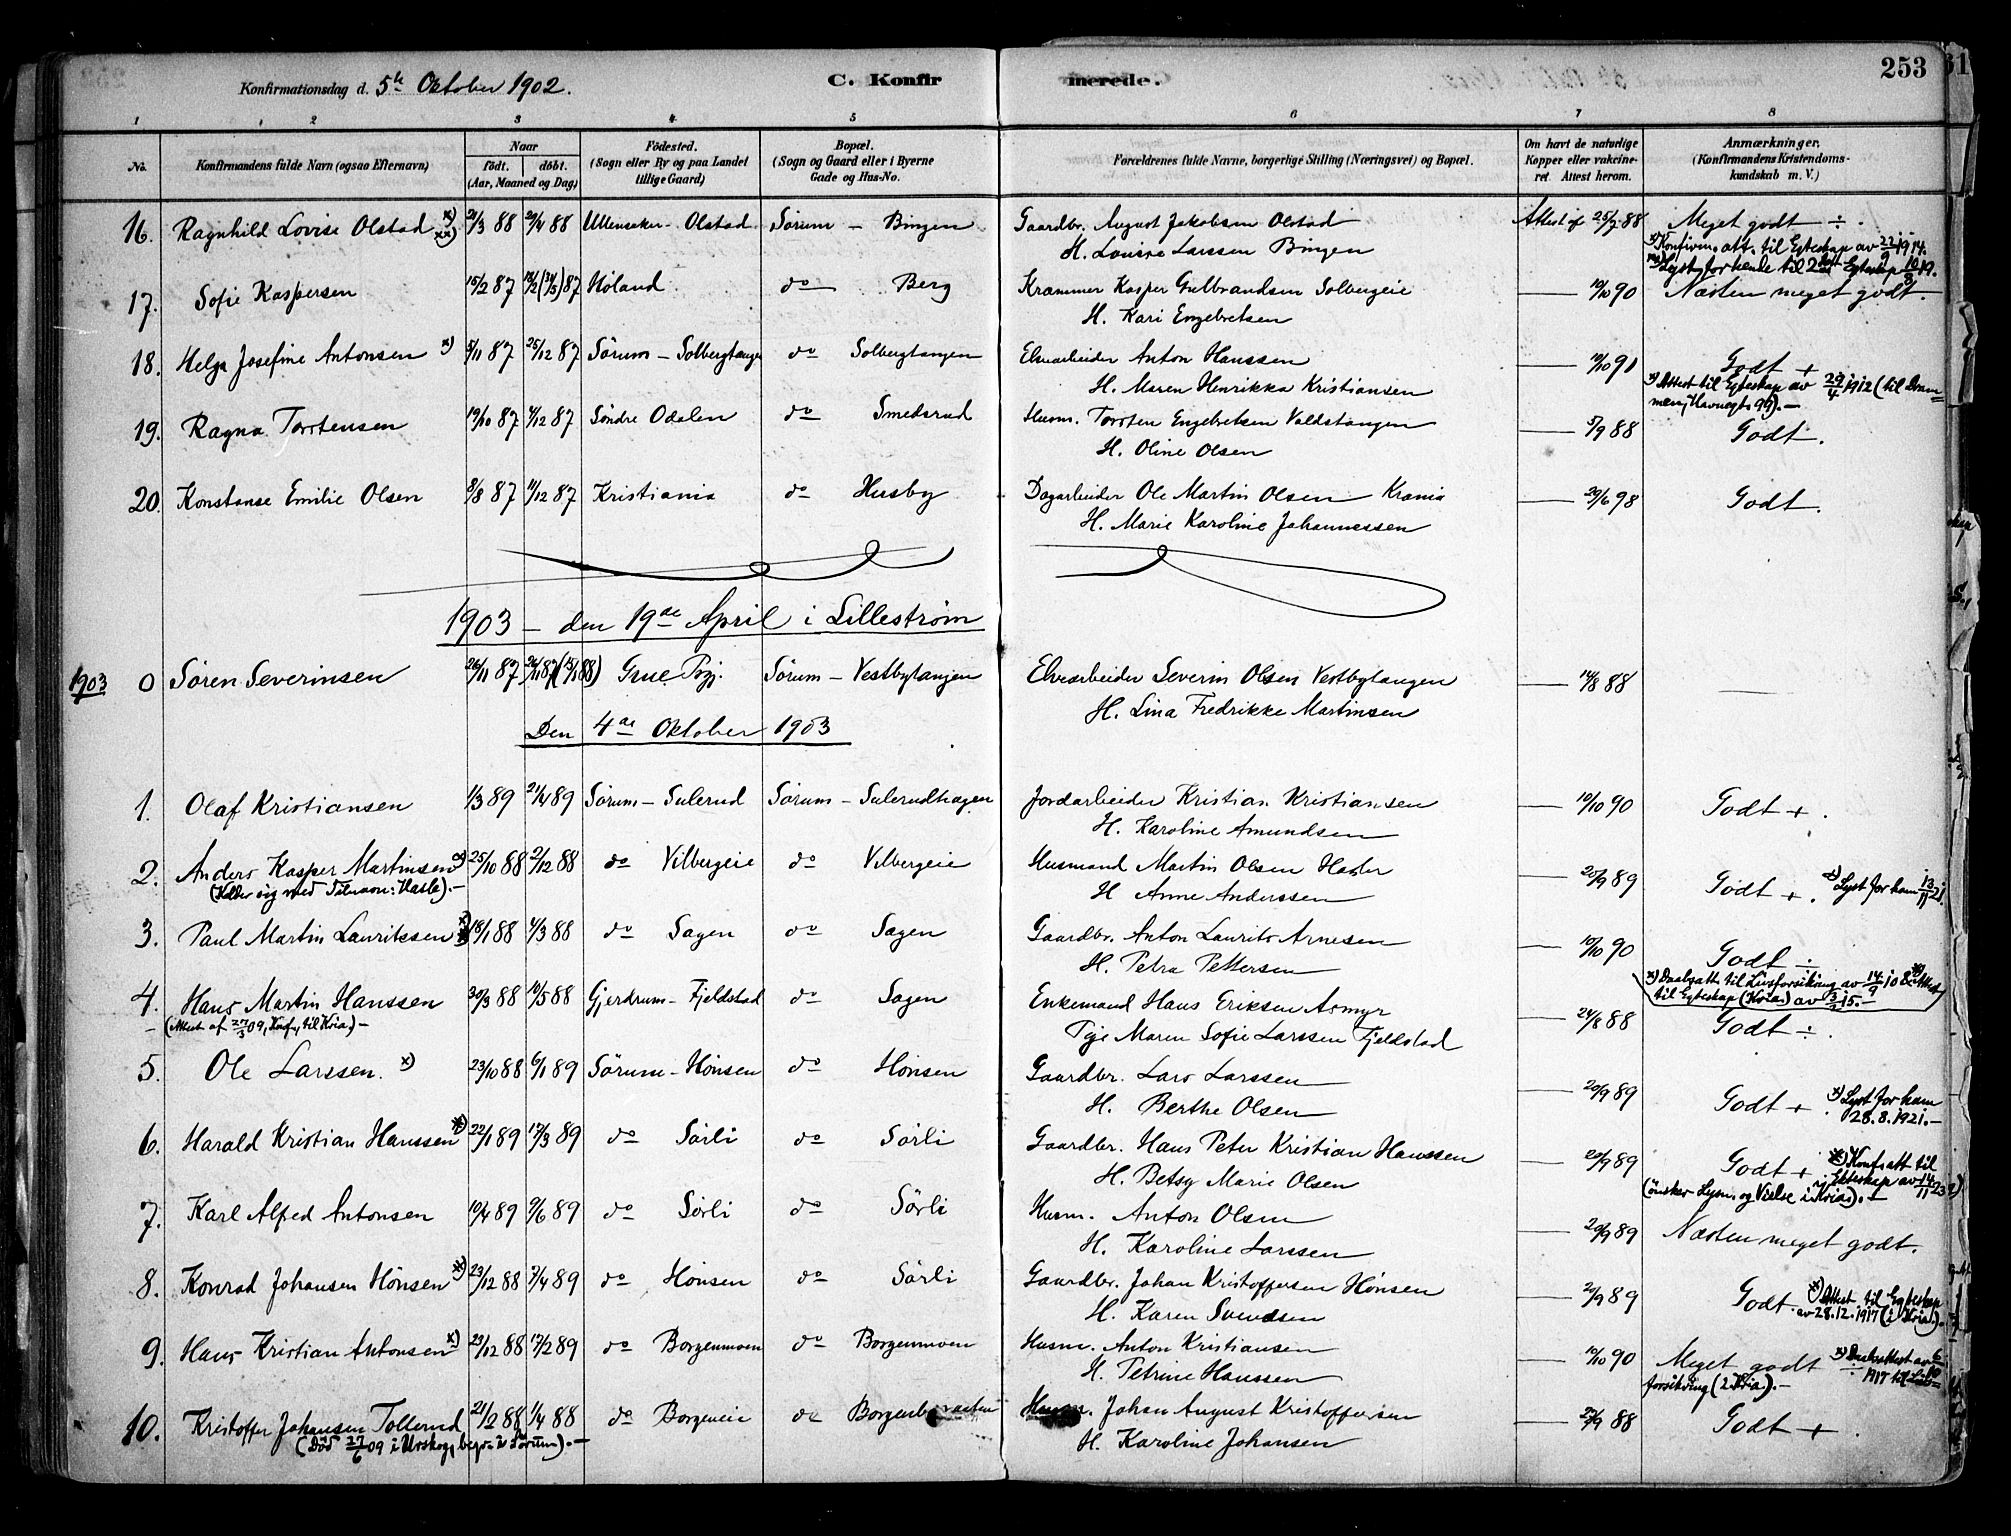 253
Konfirmationsdag d. 5te Oktober 1902.
C. Konfirmerede.
1 2 3 4 5 6 7 8
No. Konfirmandens fulde Navn (ogsaa Efternavn) Naar født. døbt. (Aar, Maaned og Dag) Fødested. (Sogn eller By og paa Landet tillige Gaard) Bopæl. (Sogn og Gaard eller i Byerne Gade og Hus-No. Forældrenes fulde Navne, borgerlige Stilling (Næringsvei) og Bopæl. Om havt de naturlige Kopper eller vakcineret. Attest herom. Anmærkninger, (Konfirmandens Kristendomskundskab m. V.)
16. Ragnhild Lovise Olstad x) xx) 21/3 88 29/4 88 Ullensaker - Olstad Sørum - Bingen Gaardbr. August Jakobsen Olstad Attest af 25/7 88 Meget godt ÷.
H. Lovise Larssen Bingen x) Konfirm. att. til Egteskap av 22/9 1914.
xx) Lyst for hende til 2det Egteskap 10/8 19.
17. Sofie Kaspersen 15/2 87 87 Høland do Berg Kræmmer Kasper Gulbrandsen Solbergeie — 10/10 90 Næsten meget godt.
H. Kari Engebretsen
18. Helga Josefine Antonsen x) 5/11 87 25/12 87 Sørum - Solbergtangen do Solbergtangen Elvearbeider Anton Hanssen — 10/10 91 Godt +
H. Maren Henrikka Kristiansen x) Attest til Egteskap av 29/4 1912 (til Drammen, Havnegt. 99). -
19. Ragna Torstensen 19/10 87 4/12 87 Søndre Odalen do Smedsrud Husm. Torsten Engebretsen Valdstangen — 5/9 88 Godt.
H. Oline Olsen
20. Konstanse Emilie Olsen 8/8 87 11/12 87 Kristiania do Husby Dagarbeider Ole Martin Olsen Krania — 29/6 98 Godt.
H. Marie Karoline Johannessen
1903 - den 19de April i Lillestrøm
1903 0 Søren Severinsen 26/11 87 Grue Pgj. Sørum - Vestbytangen Elvearbeider Severin Olsen Vestbytangen — 14/8 88 —
H. Lina Fredrikke Martinsen
Den 4de Oktober 1903
1. Olaf Kristiansen 1/3 89 21/4 89 Sørum - Sulerud Sørum - Sulerudhagen Jordarbeider Kristian Kristiansen — 10/10 90 Godt +.
H. Karoline Amundsen
2. Anders Kasper Martinsen x) 25/10 88 2/12 88 do Vilbergeie do Vilbergeie Husmand Martin Olsen Hasler — 20/9 89 Godt +. x) Lyst for ham 13/11 21.
(Kalder sig med Tilnavn: Hasle). - H Anne Anderssen
3. Paul Martin Lauritsen x) 18/1 88 4/3 88 do Sagen do Sagen Gaardbr. Anton Laurits Arnesen — 10/10 90 Godt ÷
H. Petra Pettersen x) Daabsatt til Livsforsikring av 14/9 10 Attest til Egteskap (Kria) av 3/2 15. -
4. Hans Martin Hanssen 30/3 88 10/5 88 Gjerdrum - Fjeldstad do Sagen Enkemand Hans Eriksen Asmyr — 24/8 88 Godt ÷.
- (Attest af 27/3 09, Konf., til Kria.) - Pige Maren Sofie Larssen Fjeldstad
5. Ole Larssen. x) 23/10 88 6/1 89 Sørum - Hønsen do Hønsen Gaardbr. Lars Larssen — 20/9 89 Godt +. x) Lyst for ham 28.8.1921. -
H. Berthe Olsen
6. Harald Kristian Hanssen x) 22/1 89 17/3 89 do Sørli do Sørli Gaardbr. Hans Peter Kristian Hanssen — 20/9 89 Godt + x) Konf. att til Ekteskap av 14/11 23
H. Betsy Marie Olsen (ønsker Lysn. og Vielse i Kria). -
7. Karl Alfred Antonsen 10/4 89 9/6 89 do Sørli do Sørli Husm. Anton Olsen — 20/9 89 Næsten meget godt.
H. Karoline Larssen
8. Konrad Johansen Hønsen x) 23/12 88 7/4 89 do Hønsen do Sørli Gaardbr. Johan Kristoffersen Hønsen — 20/9 89 Godt. x) Attest til Egteskap av 28.12.1917 (i Kria.).
H. Karen Svendsen
9. Hans Kristian Antonsen x) 29/12 88 17/2 89 do Borgenmoen do Borgenmoen Husm. Anton Kristiansen — 10/10 90 Meget godt x) Daabsattest av 1917 til Livsforsikring (i Kria.). -
H. Petrine Hanssen
10. Kristoffer Johansen Tollerud 21/2 88 1/4 88 do Borgeneie do Borgenbraaten Husm. Johan August Kristoffersen — 27/9 88 Godt +.
(Død 27/6 09 i Urskog, begr. i Sørum). - H. Karoline Johansen